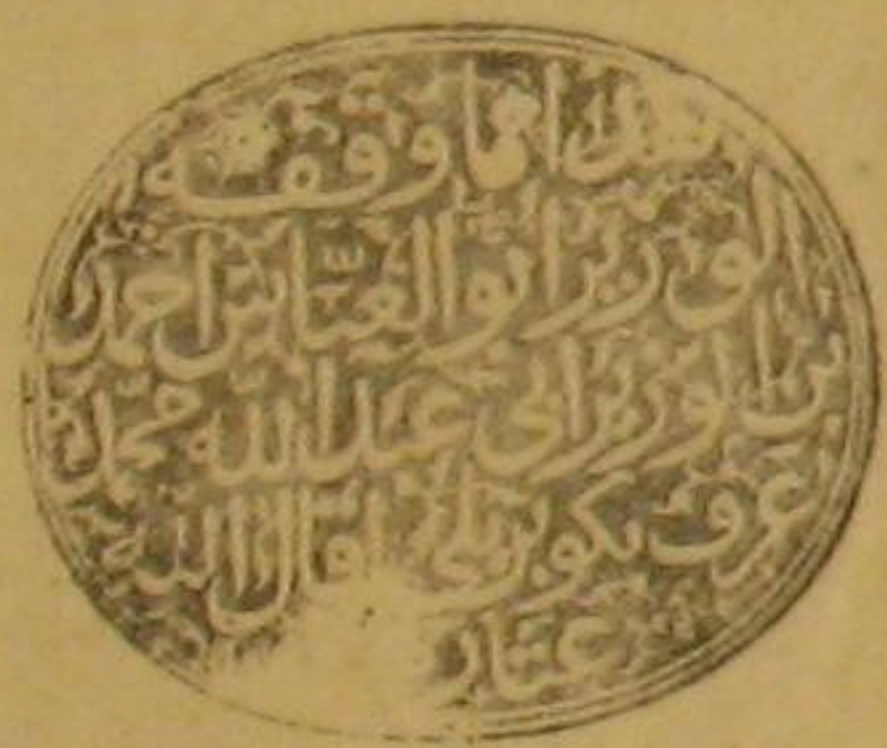 هذا مما وقفه
الوزير ابو العباس احمد
بن الوزير ابي عبد الله محمد
عرف بكوبريلي اقال الله
عثار